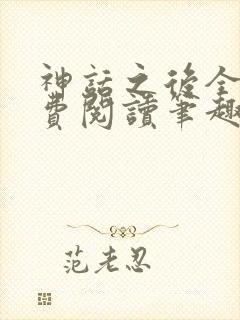 神話之後全
費閱讀筆趣
范老忍